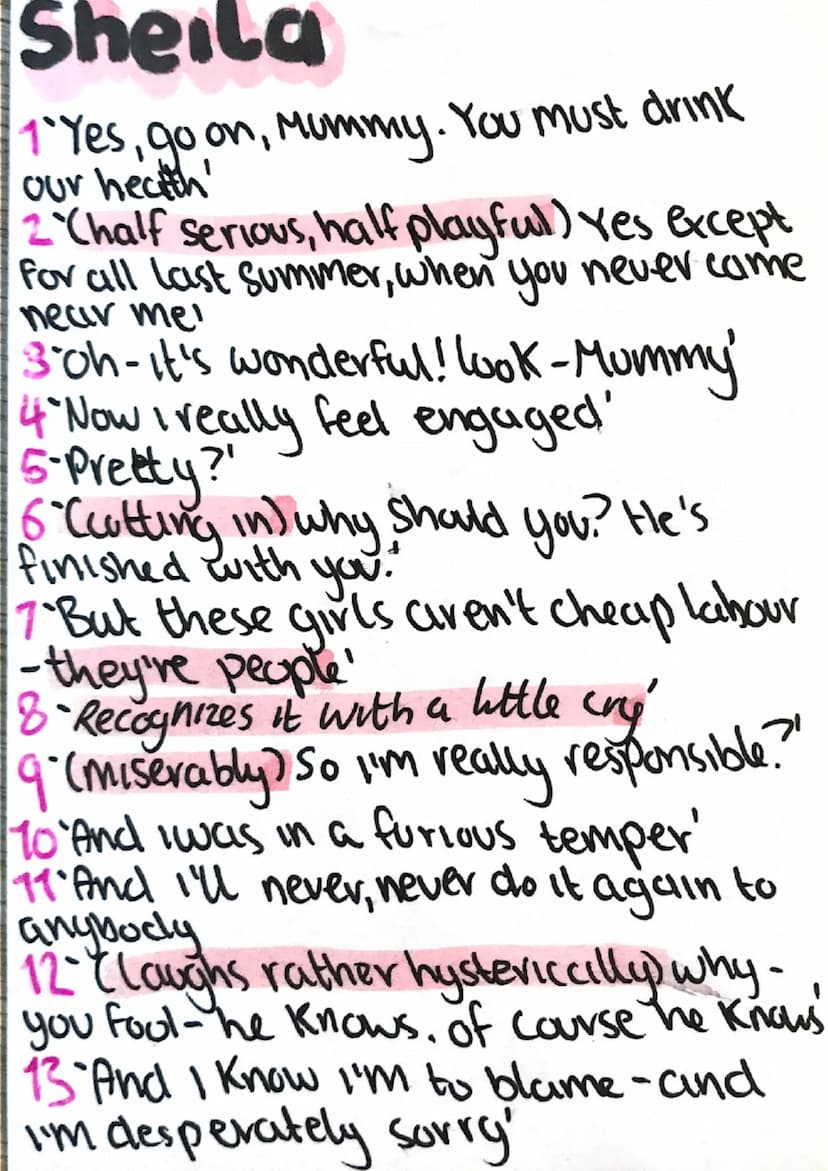 Sheila
1 'Yes, go on, Mummy. You must drink
our health'
2 '(half serious, half playful) Yes except
for all last summer, when you never came
near me'
3 'Oh-it's wonderful! Look - Mummy'
4 'Now I really feel engaged'
5 'Pretty?'
6 '(cutting in) why should you? He's
finished with you.'
7 'But these girls aren't cheap labour
-they're people'
8 'Recognizes it with a little cry'
9 '(miserably) So I'm really responsible?'
10 'And I was in a furious temper'
11 'And I'll never, never do it again to
anybody
12 '(laughs rather hysterically) why-
you fool- he knows. of course he knows'
13 'And I know I'm to blame - and
I'm desperately sorry'